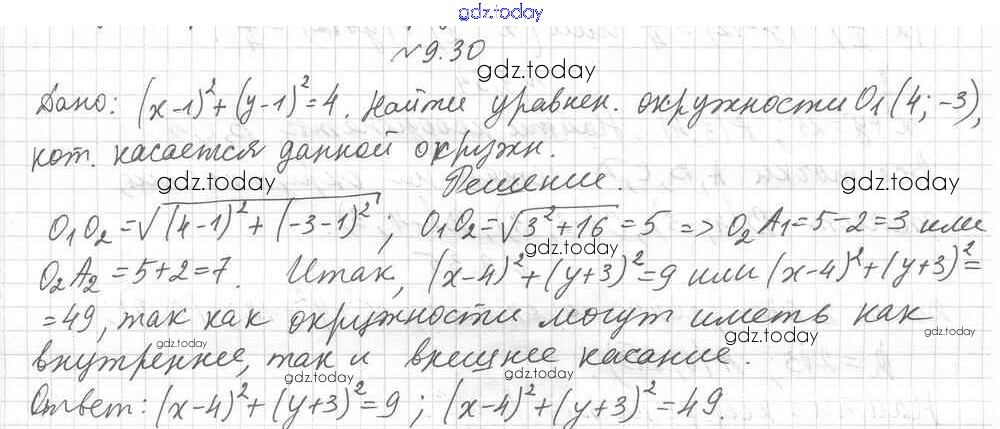 gdz.today
№9.30
gdz.today
Дано: (x-1)²+(y-1)²=4. Найти уравнен. окружности O₁(4;-3),
кот. касается данной окружн.
gdz.today Решение. gdz.today
O₁O₂=√(4-1)²+(-3-1)²; O₁O₂=√3²+16=5 => O₂A₁=5-2=3 или
gdz.today
O₂A₂=5+2=7. Итак, (x-4)²+(y+3)²=9 или (x-4)²+(y+3)²=
=49, так как окружности могут иметь как
gdz.today gdz.today gdz.today
внутреннее, так и внешнее касание.
gdz.today gdz.today
Ответ: (x-4)²+(y+3)²=9; (x-4)²+(y+3)²=49.